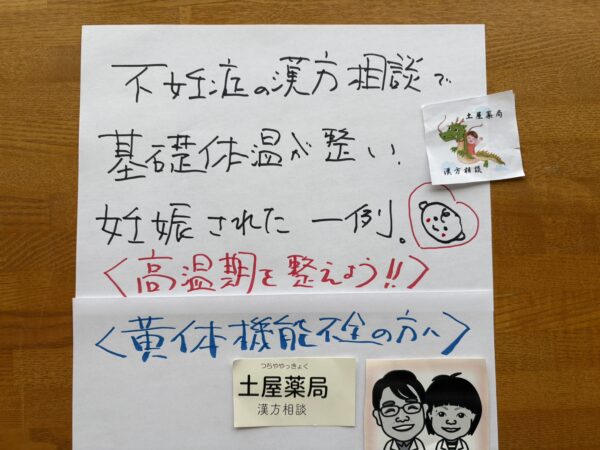 不妊症の漢方相談で
基礎体温が整い、
妊娠された一例。
<高温期を整えよう!!>
<黄体機能不全の方へ>
土屋薬局
漢方相談
つちややっきょく
土屋薬局
漢方相談